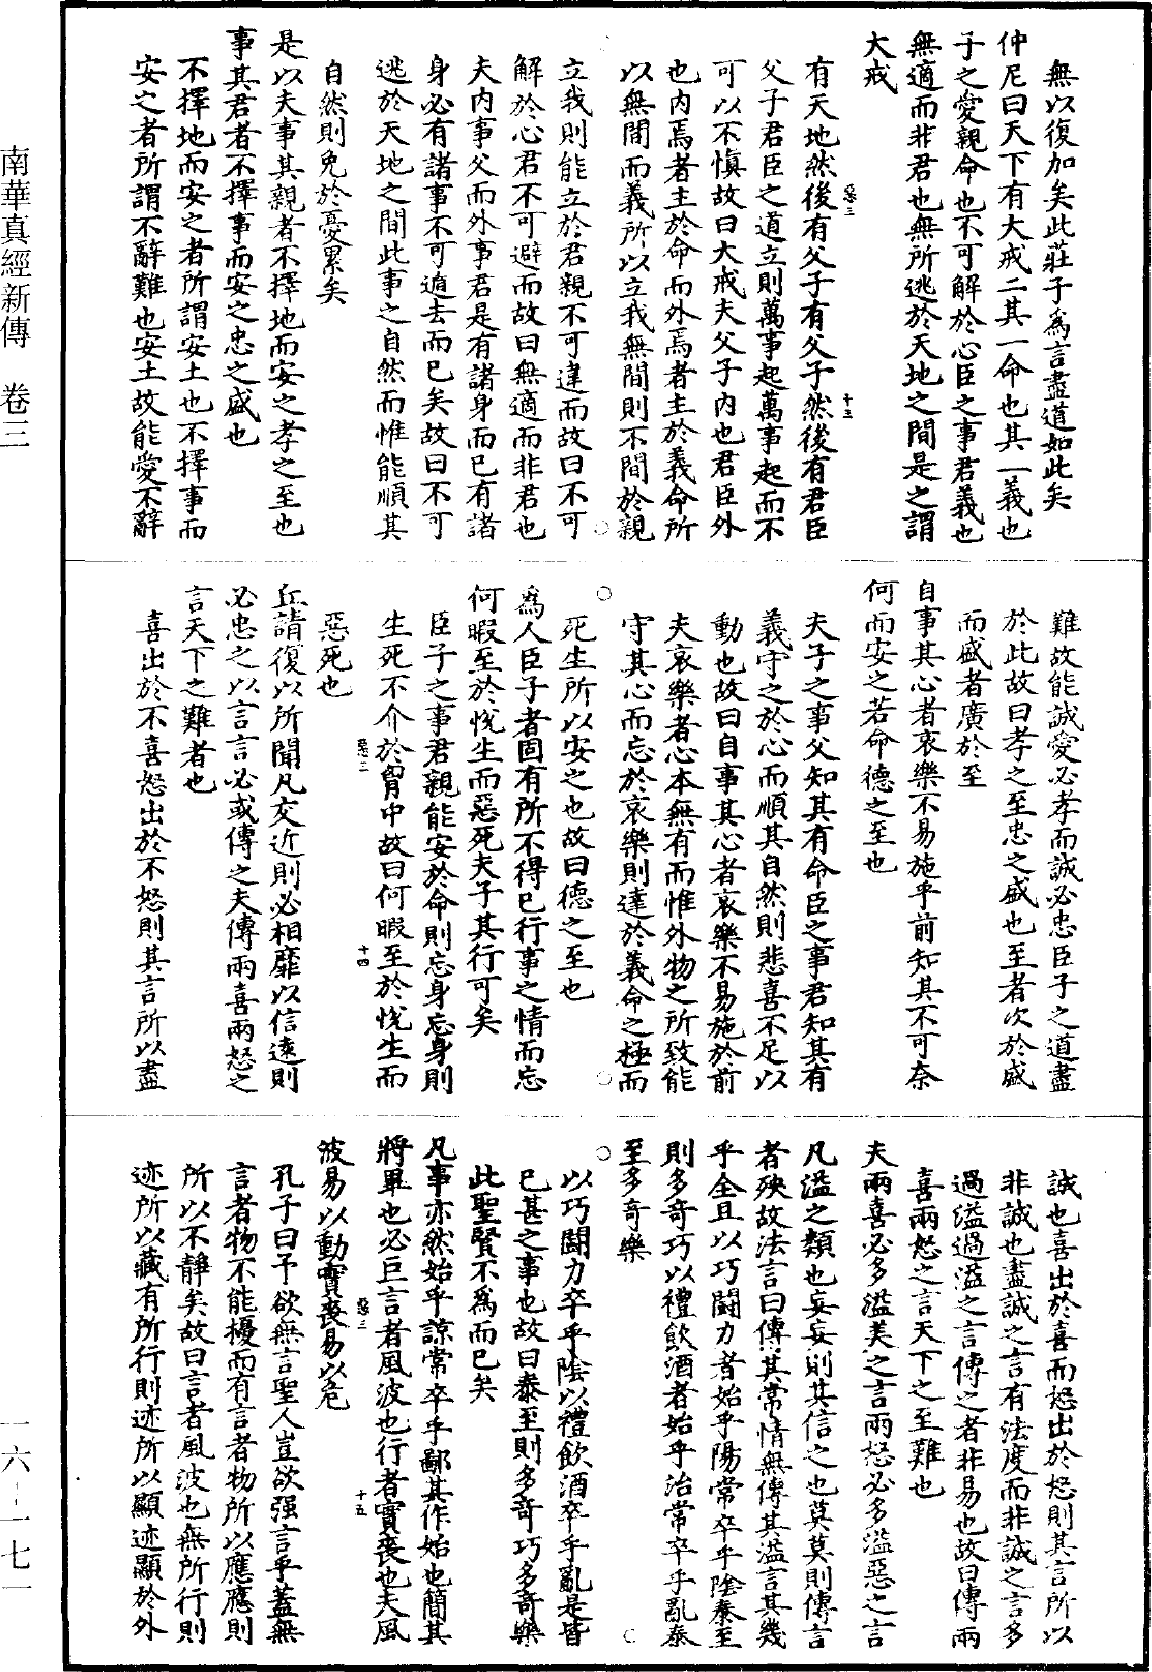 南華真經新傳　卷三
一六—一七一
無以復加矣此莊子為言盡道如此矣
仲尼曰天下有大戒二其一命也其一義也
子之愛親命也不可解於心臣之事君義也
無適而非君也無所逃於天地之間是之謂
大戒
有天地然後有父子有父子然後有君臣
惡三
十三
父子君臣之道立則萬事起萬事起而不
可以不慎故曰大戒夫父子內也君臣外
也內焉者主於命而外焉者主於義命所
以無間而義所以立我無間則不間於親
立我則能立於君親不可違而故曰不可
解於心君不可避而故曰無適而非君也
夫內事父而外事君是有諸身而已有諸
身必有諸事不可遁去而已矣故曰不可
逃於天地之間此事之自然而惟能順其
自然則免於憂累矣
是以夫事其親者不擇地而安之孝之至也
事其君者不擇事而安之忠之盛也
不擇地而安之者所謂安土也不擇事而
安之者所謂不辭難也安土故能愛不辭
難故能誠愛必孝而誠必忠臣子之道盡
於此故曰孝之至忠之盛也至者次於盛
而盛者廣於至
自事其心者哀樂不易施乎前知其不可奈
何而安之若命德之至也
夫子之事父知其有命臣之事君知其有
義守之於心而順其自然則悲喜不足以
動也故曰自事其心者哀樂不易施於前
夫哀樂者心本無有而惟外物之所致能
守其心而忘於哀樂則達於義命之極而
死生所以安之也故曰德之至也
為人臣子者固有所不得已行事之情而忘
何暇至於悅生而惡死夫子其行可矣
臣子之事君親能安於命則忘身忘身則
生死不介於胷中故曰何暇至於悅生而
惡三
十四
惡死也
丘請復以所聞凡交近則必相靡以信遠則
必忠之以言言必或傳之夫傳兩喜兩怒之
言天下之難者也
喜出於不喜怒出於不怒則其言所以盡
誠也喜出於喜而怒出於怒則其言所以
非誠也盡誠之言有法度而非誠之言多
過溢過溢之言傳之者非易也故曰傳兩
喜兩怒之言天下之至難也
夫兩喜必多溢美之言兩怒必多溢惡之言
凡溢之類也妄妄則其信之也莫莫則傳言
者殃故法言曰傳其常情無傳其溢言其幾
乎全且以巧鬪力者始乎陽常卒乎陰泰至
則多奇巧以禮飲酒者始乎治常卒乎亂泰
至多奇樂
以巧鬪力卒乎陰以禮飲酒卒乎亂是皆
已甚之事也故曰泰至則多奇巧多奇樂
此聖賢不為而已矣
凡事亦然始乎諒常卒乎鄙其作始也簡其
將畢也必巨言者風波也行者實喪也夫風
惡三
十五
波易以動實喪易以危
孔子曰予欲無言聖人豈欲强言乎蓋無
言者物不能擾而有言者物所以應應則
所以不靜矣故曰言者風波也無所行則
迹所以藏有所行則迹所以顯迹顯於外